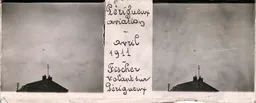 Périgueux
aviation
-
avril
1911
Fischer
volant sur
Périgueux